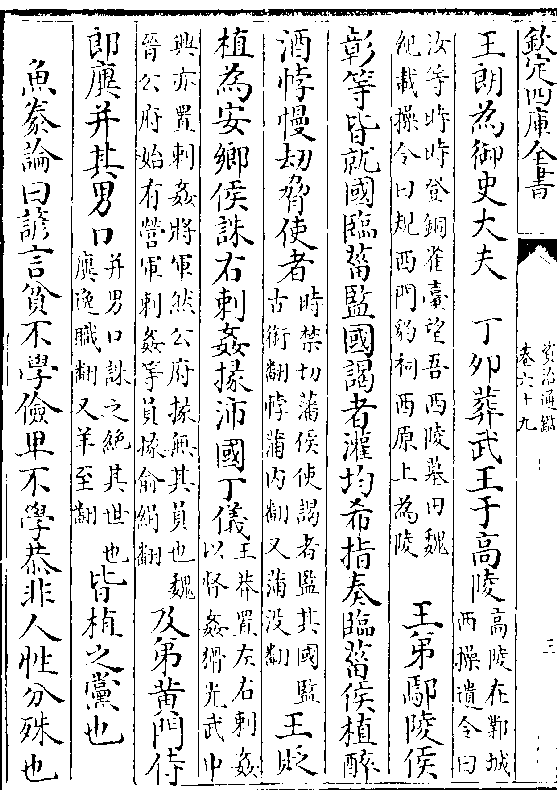 欽定四庫全書
資治通鑑
卷六十九
三
王朗為御史大夫　丁卯葬武王于高陵高陵在鄴城西操遺令曰
汝等時時登銅雀臺望吾西陵墓田魏紀載操令曰規西門豹祠西原上為陵　王弟鄢陵侯
彰等皆就國臨菑監國謁者灌均希指奏臨菑侯植醉
酒悖慢刼脅使者時禁切藩侯使謁者監其國監古銜翻悖蒲内翻又蒲沒翻　王貶
植為安鄉侯誅右刺姦掾沛國丁儀王莽置左右刺姦以督姦猾光武中
興亦置刺姦將軍然公府掾無其員也魏晉公府始有營軍刺姦等員掾俞絹翻　及弟黄門侍
郎廙并其男口并男口誅之絶其世也廙逸職翻又羊至翻　皆植之黨也
魚豢論曰諺言貧不學儉卑不學恭非人性分殊也